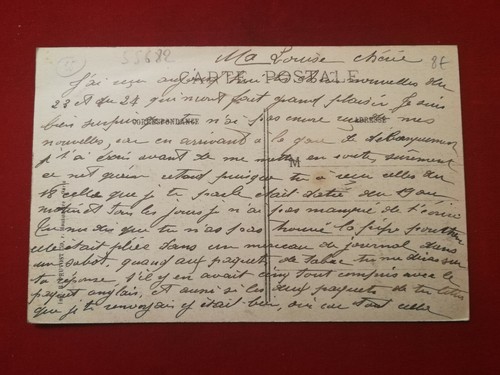 55682
Ma Louise chérie
87
CARTE POSTALE
J'ai reçu aujourd'hui tes bonnes nouvelles du
23 et du 24 qui m'ont fait grand plaisir je suis
bien surpris que tu n'ai pas encore mes
CORRESPONDANCE
ADRESSE
nouvelles, car en arrivant à la gare de débarquement
je t'ai écris avant de me mettre en route, sûrement
ce n'est qu'un retard puisque tu a reçu celles du
18 celle que je te parle était datée du 19 au
matin et tous les jours je n'ai pas manqué de t'écrire
tu me dis que tu n'as pas trouvé la pipe pourtant
elle était pliée dans un morceau de journal dans
un sabot, quand aux paquets de tabac tu me diras sur
ta réponse s'il y en avait cinq tout compris avec le
paquet anglais, et aussi si les deux paquets de
que je te renvoyais y était bien, oui car tout cela
M